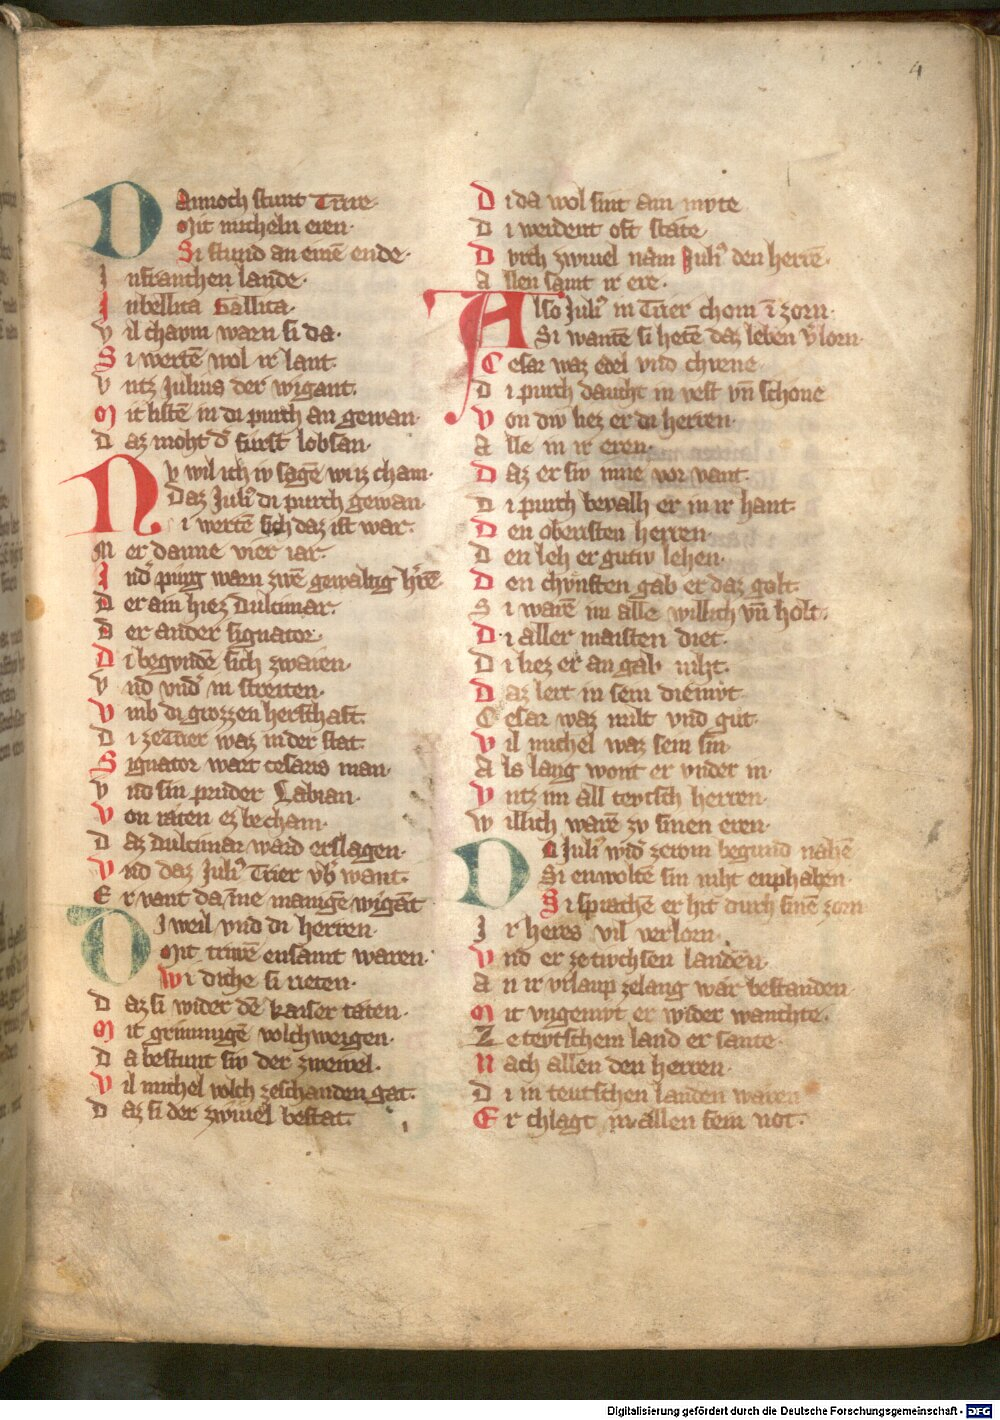 4
Dannoch stunt Triere·
Mit micheln eren·
Si stund an einē ende·
In franchen lande·
In bellica Gallica·
Vil chaum warn si da·
Si wertē wol ir lant·
Vntz Julius der wigant·
Mit listē in di purch an gewan·
Daz moht d͛ furst lobsan·
Nv wil ich iv sagē wi iz cham·
Daz Juli᾽ di purch gewan·
i wertē sich daz ist war·
Mer danne vier iar·
In d͛ purg warn zwē gewaltig h͛re
Der ain hiez Dulcimar·
Der ander Signator·
Di begundē sich zwaien·
Vnd vnd͛ in streiten·
Vmb di grozzen herschaft·
Di ze Trier waz in der stat·
Signator wart cesaris man·
Vnd sin pruder Labian·
Von raten ez becham·
Daz Dulcimar ward erslagen·
Vnd daz Juli᾽ Trier vb͛ want·
Er vant da īne manigē wigāt·
Di weil vnd di herren·
Mit triwē ensamt waren·
Wi diche si rieten·
Daz si wider dē kaiser taten·
Mit grimmigē volchweigen·
Da bestunt siv der zweivel·
Vil michel volch ze schanden gat·
Daz si der zwivel bestat·
Di da wol sint ain mvte
Di werdent oft state·
Durch zwivel nam Juli᾽ den herrē·
Allen samt ir ere·
Also Juli᾽ in Trier chom ī zorn·
Si wantē si hetē daz leben v͛lorn·
Cesar waz edel vnd chvene·
Di purch daucht in vest vn̄ schone
Von div liez er di herren·
Alle in ir eren·
Daz er siv inne vor vant·
Di purch bevalh er in ir hant·
Den oberisten herren·
Den leh er gutiv lehen·
Den chvnsten gab er daz golt·
Si warē im alle willich vn̄ holt·
Di aller maisten diet·
Di liez er an gab niht·
Daz lert in sein diemvt·
Cesar waz milt vnd gut·
Vil michel waz sein sin·
Als lang wont er vnder in·
Vntz im all tevtsch herren·
Willich warē zv sinen eren·
Do Juli᾽ wid͛ ze rom begund nahē
Si en woltē sin niht enphahen·
Si sprachē er hit durch sinē zorn
Ir heres vil verlorn·
Vnd er ze tivchsen landen·
An ir vrlaup ze lang war bestanden·
Mit vngemvt er wider wanchte·
Ze tevtschem land er sante·
Nach allen den herren·
Di in teutschen landen waren
Er chlagt in allen sein not·
Digitalisierung gefördert durch die Deutsche Forschungsgemeinschaft - DFG